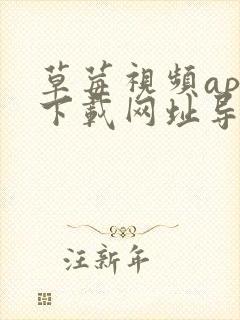 草莓視頻ap
下載网址导
汪新年